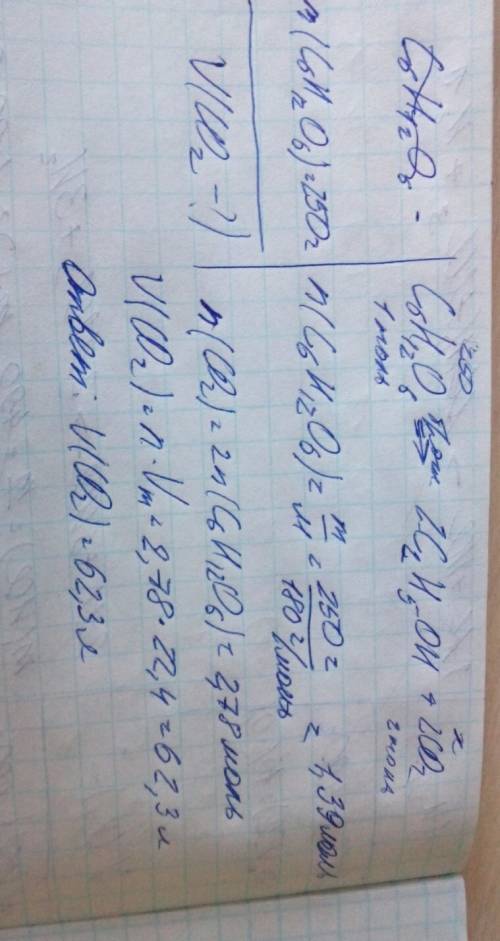 C6H12O6 -
m(C6H12O6)=250г
V(CO2 -?)
250 x
C6H12O6 ⇒ 2C2H5OH + 2CO2
1 моль 2 моль
n(C6H12O6) = m/M = 250г/180 г/моль = 1,39 моль
n(CO2) = 2n(C6H12O6) = 2,78 моль
V(CO2) = n·Vm = 2,78·22,4 = 62,3 л
Ответ: V(CO2) = 62,3 л